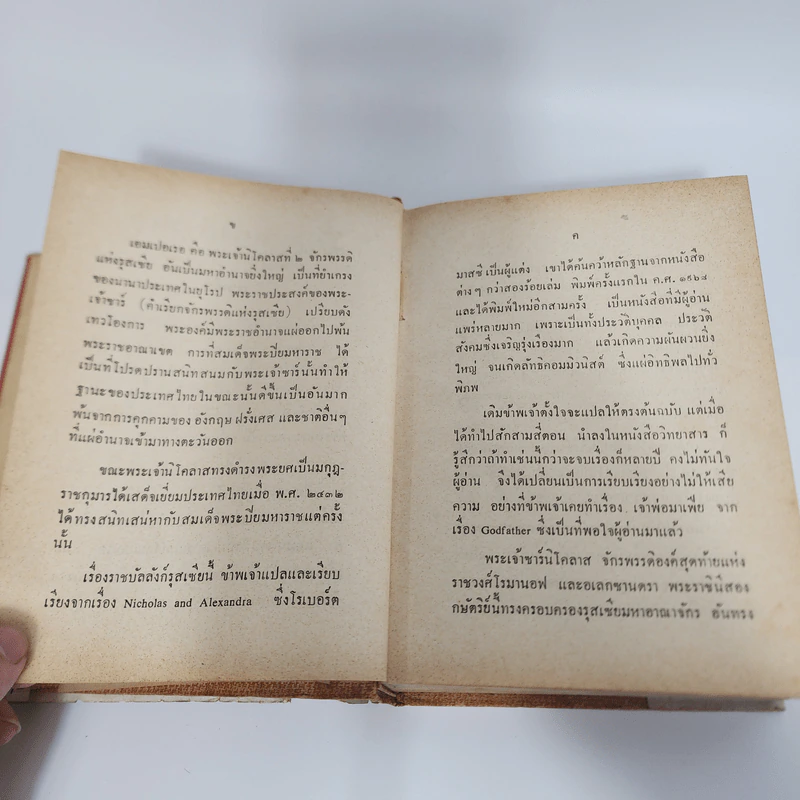 ข
เอมเปอเรอ คือ พระเจ้านิโคลาสที่ ๒ จักรพรรดิ
แห่งรุสเซีย อันเป็นมหาอำนาจยิ่งใหญ่ เป็นที่ยำเกรง
ของนานาประเทศในยุโรป พระราชประสงค์ของพระ-
เจ้าซาร์ (คำเรียกจักรพรรดิแห่งรุสเซีย) เปรียบดัง
เทวโองการ พระองค์มีพระราชอำนาจแผ่ออกไปพ้น
พระราชอาณาเขต การที่สมเด็จพระปิยมหาราช ได้
เป็นที่โปรดปรานสนิทสนมกับพระเจ้าซาร์นั้นทำให้
ฐานะของประเทศไทยในขณะนั้นดีขึ้นเป็นอันมาก
พ้นจากการคุกคามของ อังกฤษ ฝรั่งเศส และชาติอื่นๆ
ที่แผ่อำนาจเข้ามาทางตะวันออก
ขณะพระเจ้านิโคลาสทรงดำรงพระยศเป็นมกุฎ-
ราชกุมารได้เสด็จเยี่ยมประเทศไทยเมื่อ พ.ศ. ๒๔๓๒
ได้ทรงสนิทเสน่หากับสมเด็จพระปิยมหาราชแต่ครั้ง
นั้น
เรื่องราชบัลลังก์รุสเซียนี้ ข้าพเจ้าแปลและเรียบ
เรียงจากเรื่อง Nicholas and Alexandra ซึ่งโรเบอร์ต
ค
มาสซี เป็นผู้แต่ง เขาได้ค้นคว้าหลักฐานจากหนังสือ
ต่างๆ กว่าสองร้อยเล่ม พิมพ์ครั้งแรกใน ค.ศ. ๑๙๖๘
และได้พิมพ์ใหม่อีกสามครั้ง เป็นหนังสือที่มีผู้อ่าน
แพร่หลายมาก เพราะเป็นทั้งประวัติบุคคล ประวัติ
สังคมซึ่งเจริญรุ่งเรืองมาก แล้วเกิดความผันผวนยิ่ง
ใหญ่ จนเกิดลัทธิคอมมิวนิสต์ ซึ่งแผ่อิทธิพลไปทั่ว
พิภพ
เดิมข้าพเจ้าตั้งใจจะแปลให้ตรงต้นฉบับ แต่เมื่อ
ได้ทำไปสักสามสี่ตอน นำลงในหนังสือวิทยาสาร ก็
รู้สึกว่าถ้าทำเช่นนี้กว่าจะจบเรื่องก็หลายปี คงไม่ทันใจ
ผู้อ่าน จึงได้เปลี่ยนเป็นการเรียบเรียงอย่างไม่ให้เสีย
ความ อย่างที่ข้าพเจ้าเคยทำเรื่อง เจ้าพ่อมาเฟีย จาก
เรื่อง Godfather ซึ่งเป็นที่พอใจผู้อ่านมาแล้ว
พระเจ้าซาร์นิโคลาส จักรพรรดิองค์สุดท้ายแห่ง
ราชวงศ์โรมานอฟ และอเลกซานดรา พระราชินีสอง
กษัตริย์นี้ทรงครอบครองรุสเซียมหาอาณาจักร อันทรง